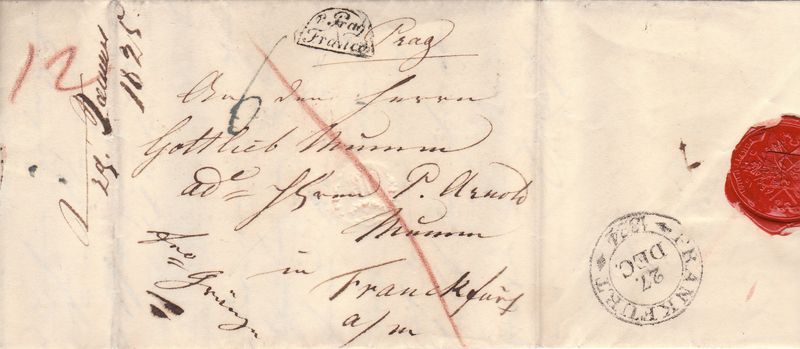 12
1825
v. Prag
Franco
Prag
6
An den Herrn
Gottlieb Mumm
ad= Herrn P. Arnold
Mumm
in
Franckfurt
a/m
fro
Gränze
FRANKFURT
27.
DEC.
1824